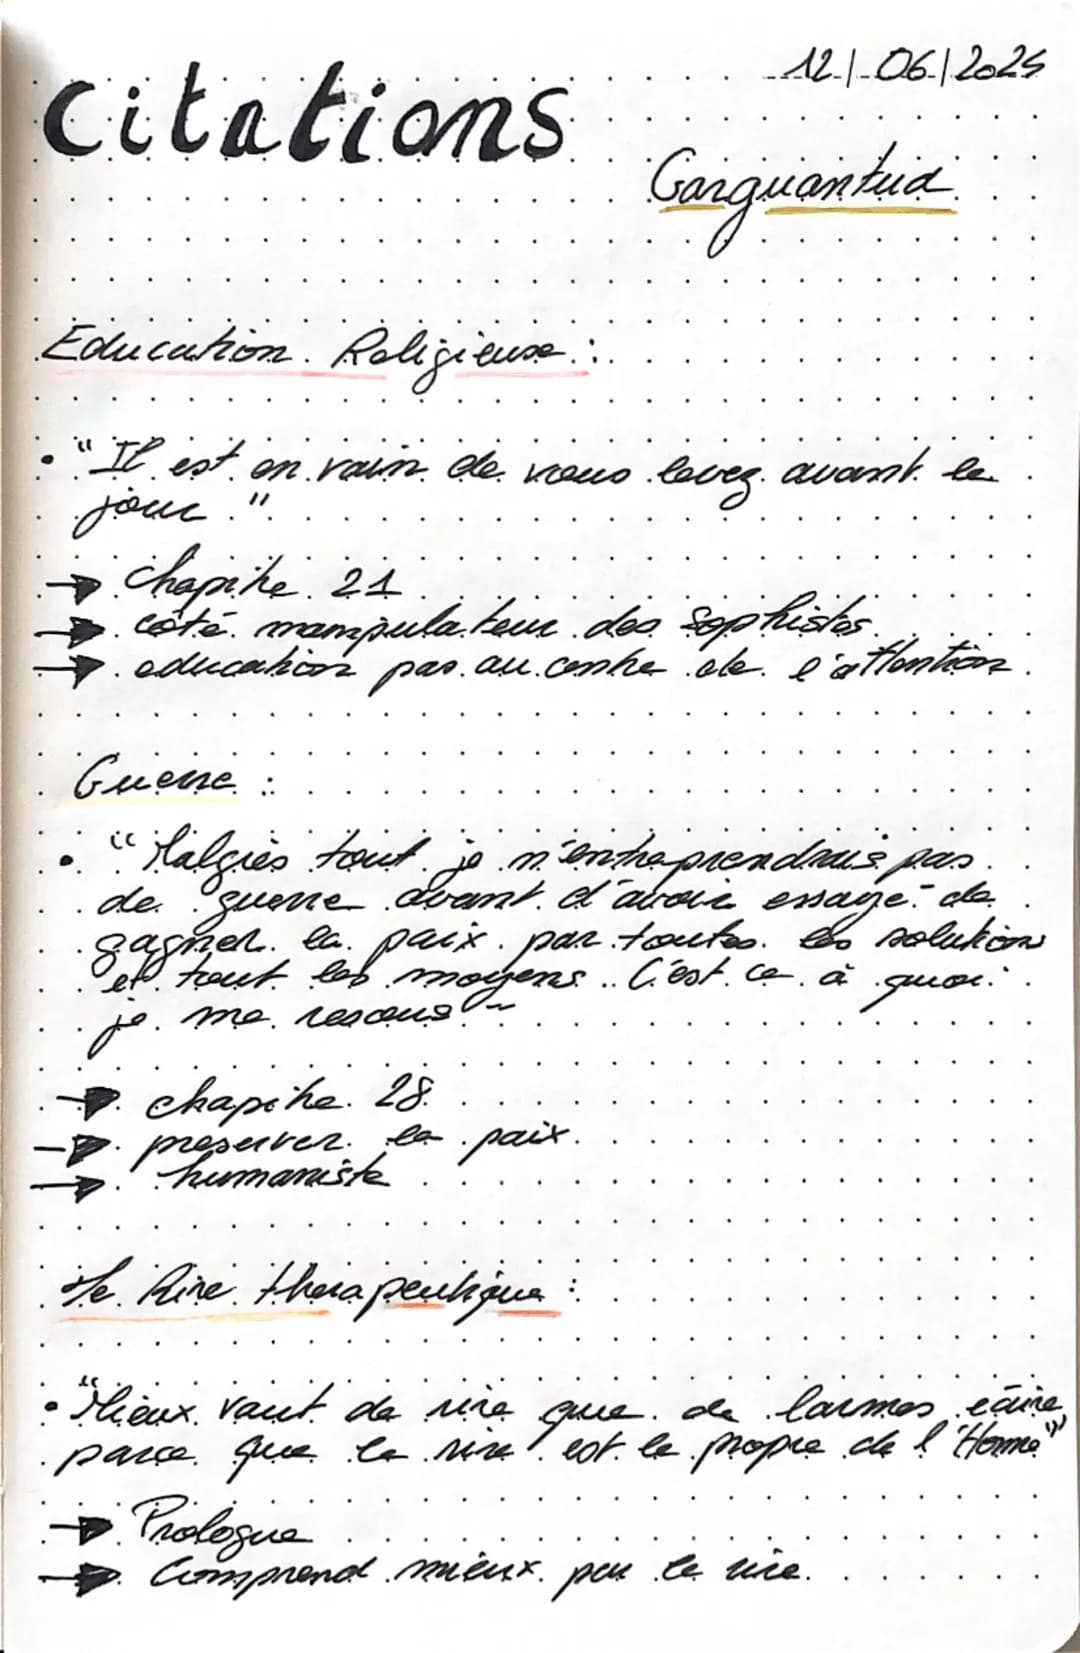 12/06/2025
Citations
Garguantua
Education Religieuse :
• "Il est en vain de vous levez avant le
jour."
→ chapitre 21
→ côté manipulateur des Sophistes
→ education pas au centre de l'attention
Guerre :
• "Malgrès tout je n'entreprendrais pas
de guerre avant d'avoir essayé de
gagner la paix par toutes les solutions
et tout les moyens. C'est ce à quoi
je me resous"
→ chapitre 28
→ preserver la paix
→ humaniste
Le Rire therapeutique :
• "Mieux vaut de rire que de larmes écrire
parce que le rire est le propre de l'Homme"
→ Prologue
→ Comprend mieux par le rire.